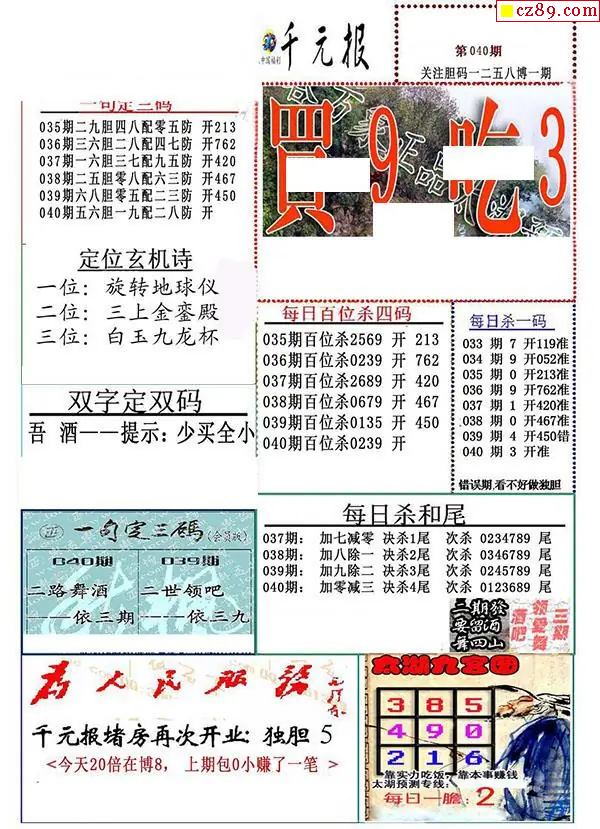 cz89.com
中国福利
千元报
第040期
关注胆码一二五八博一期
一句定三码
035期二九胆四八配零五防 开213
036期三六胆二八配四七防 开762
037期一六胆三七配九五防 开420
038期二五胆零八配六三防 开467
039期六八胆零五配二三防 开450
040期五六胆一九配二八防 开
買 9 吃 3
定位玄机诗
一位: 旋转地球仪
二位: 三上金銮殿
三位: 白玉九龙杯
每日百位杀四码
035期百位杀2569 开 213
036期百位杀0239 开 762
037期百位杀2689 开 420
038期百位杀0679 开 467
039期百位杀0135 开 450
040期百位杀0239 开
每日杀一码
033 期 7 开119准
034 期 9 开052准
035 期 0 开213准
036 期 9 开762准
037 期 1 开420准
038 期 0 开467准
039 期 4 开450错
040 期 3 开准
错误期,看不好做独胆
双字定双码
吾 酒——提示: 少买全小
一句定三碼(会员版)
040期 039期
二路舞酒 二世领吧
——依三期 ——依三九
每日杀和尾
037期: 加七减零 决杀1尾 次杀 0234789 尾
038期: 加八除一 决杀2尾 次杀 0346789 尾
039期: 加九除二 决杀3尾 次杀 0245789 尾
040期: 加零减三 决杀4尾 次杀 0123689 尾
三期發
要留酒
舞四山
三期
领爱舞
酒吧
为人民服务
千元报堵房再次开业: 独胆 5
<今天20倍在博8, 上期包0小赚了一笔 >
太湖九宫图
3 8 5
4 9 0
2 1 6
靠实力吃饭,靠本事赚钱
太湖预测专线:
每日一膽: 2